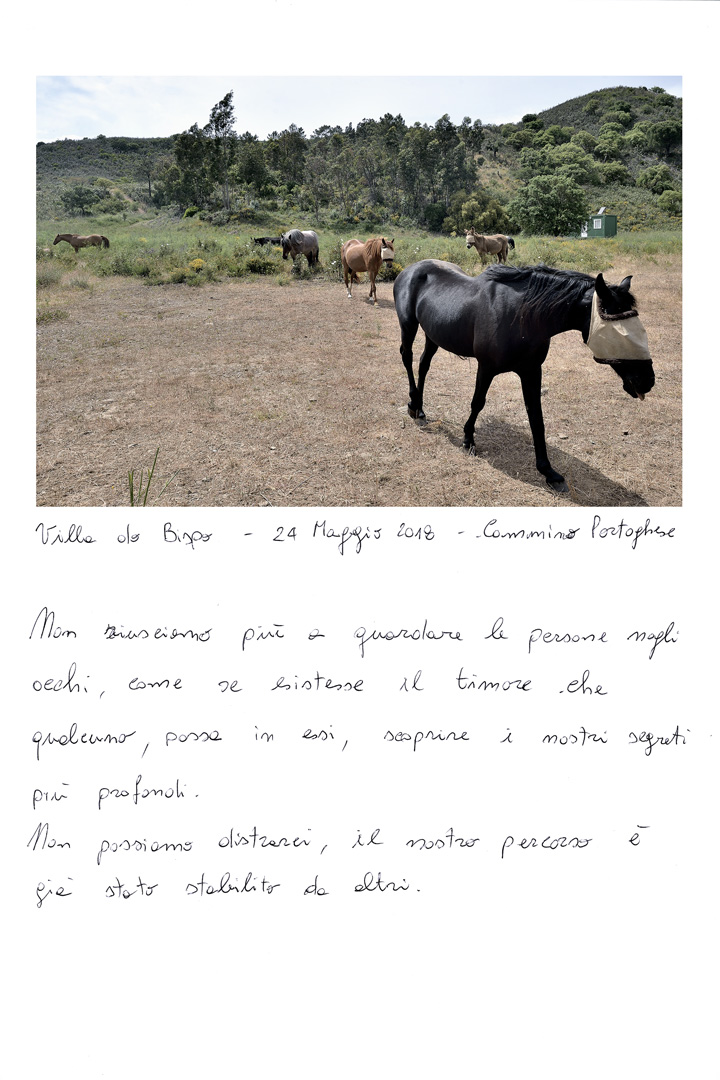 Villa do Bispo - 24 Maggio 2018 - Cammino Portoghese
Non riusciamo più a guardare le persone negli
occhi, come se esistesse il timore che
qualcuno, possa in essi, scoprire i nostri segreti
più profondi.
Non possiamo distrarci, il nostro percorso è
già stato stabilito da altri.